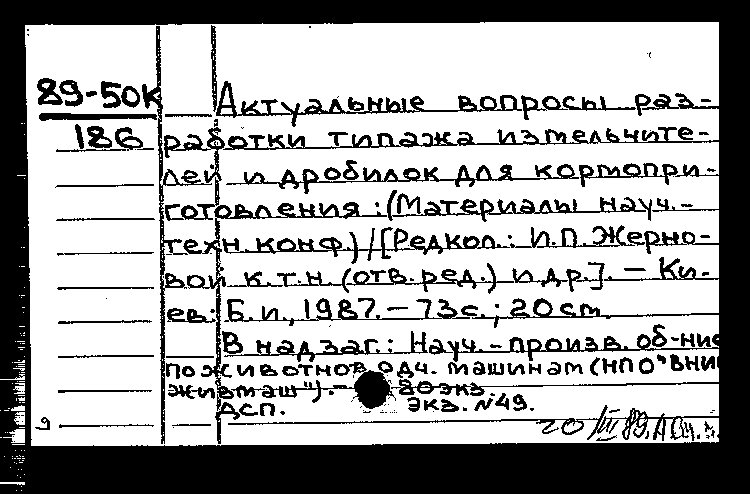 89-50К
186
Актуальные вопросы раз-
работки типажа измельчите-
лей и дробилок для кормопри-
готовления : (Материалы науч.-
техн. конф.) / [Редкол.: И.П. Жерно-
вой к.т.н. (отв. ред.) и др.]. – Ки-
ев: Б. и., 1987. – 73 с. ; 20 см.
В надзаг.: Науч.-произв. об-ние
по животноводч. машинам (НПО "ВНИИ
живмаш"). – 80 экз.
ДСП. экз. №49.
9
20/III 89.